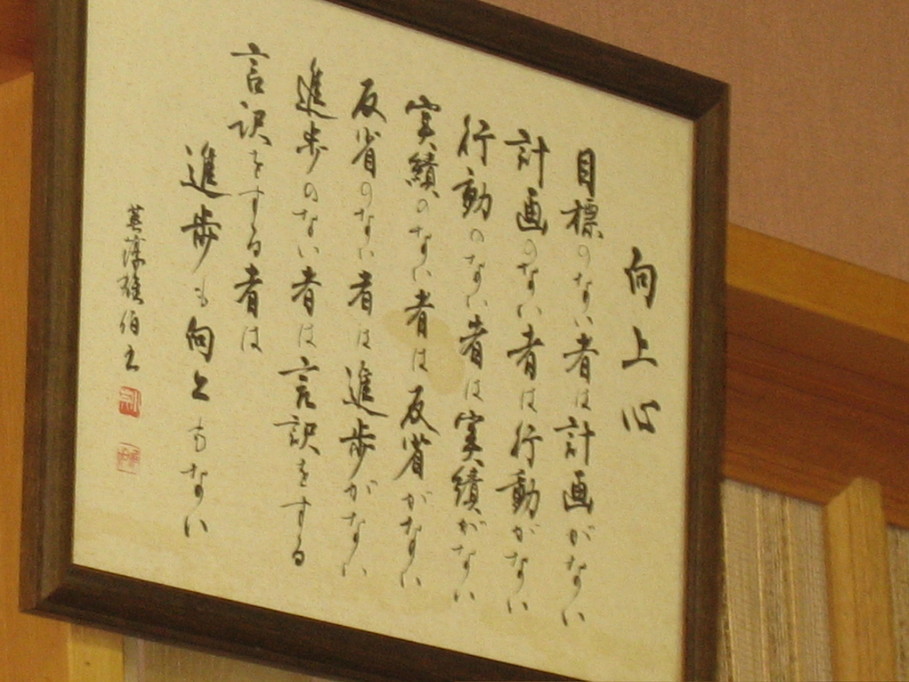 向上心
目標のない者は計画がない
計画のない者は行動がない
行動のない者は実績がない
実績のない者は反省がない
反省のない者は進歩がない
進歩のない者は言訳をする
言訳をする者は
進歩も向上もない